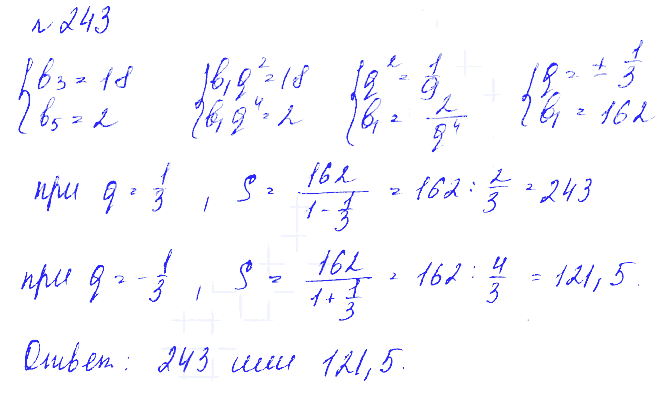 № 243
{b₃ = 18 {b₁q² = 18 {q² = 1/9 {q = ± 1/3
{b₅ = 2 {b₁q⁴ = 2 {b₁ = 2/q⁴ {b₁ = 162
при q = 1/3 , S = 162/(1 - 1/3) = 162 : 2/3 = 243
при q = - 1/3 , S = 162/(1 + 1/3) = 162 : 4/3 = 121,5.
Ответ: 243 или 121,5.